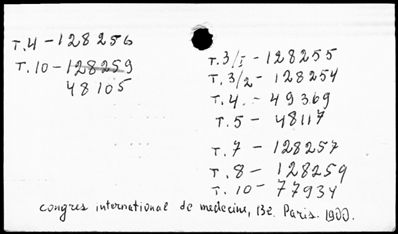 T.4 - 128256
T.10 - 128259
48105
T.3/I - 128255
T.3/2 - 128254
T.4. - 49369
T.5 - 48117
T.7 - 128257
T.8 - 128259
T.10 - 77934
Congres international de medecins, 13e. Paris. 1900.